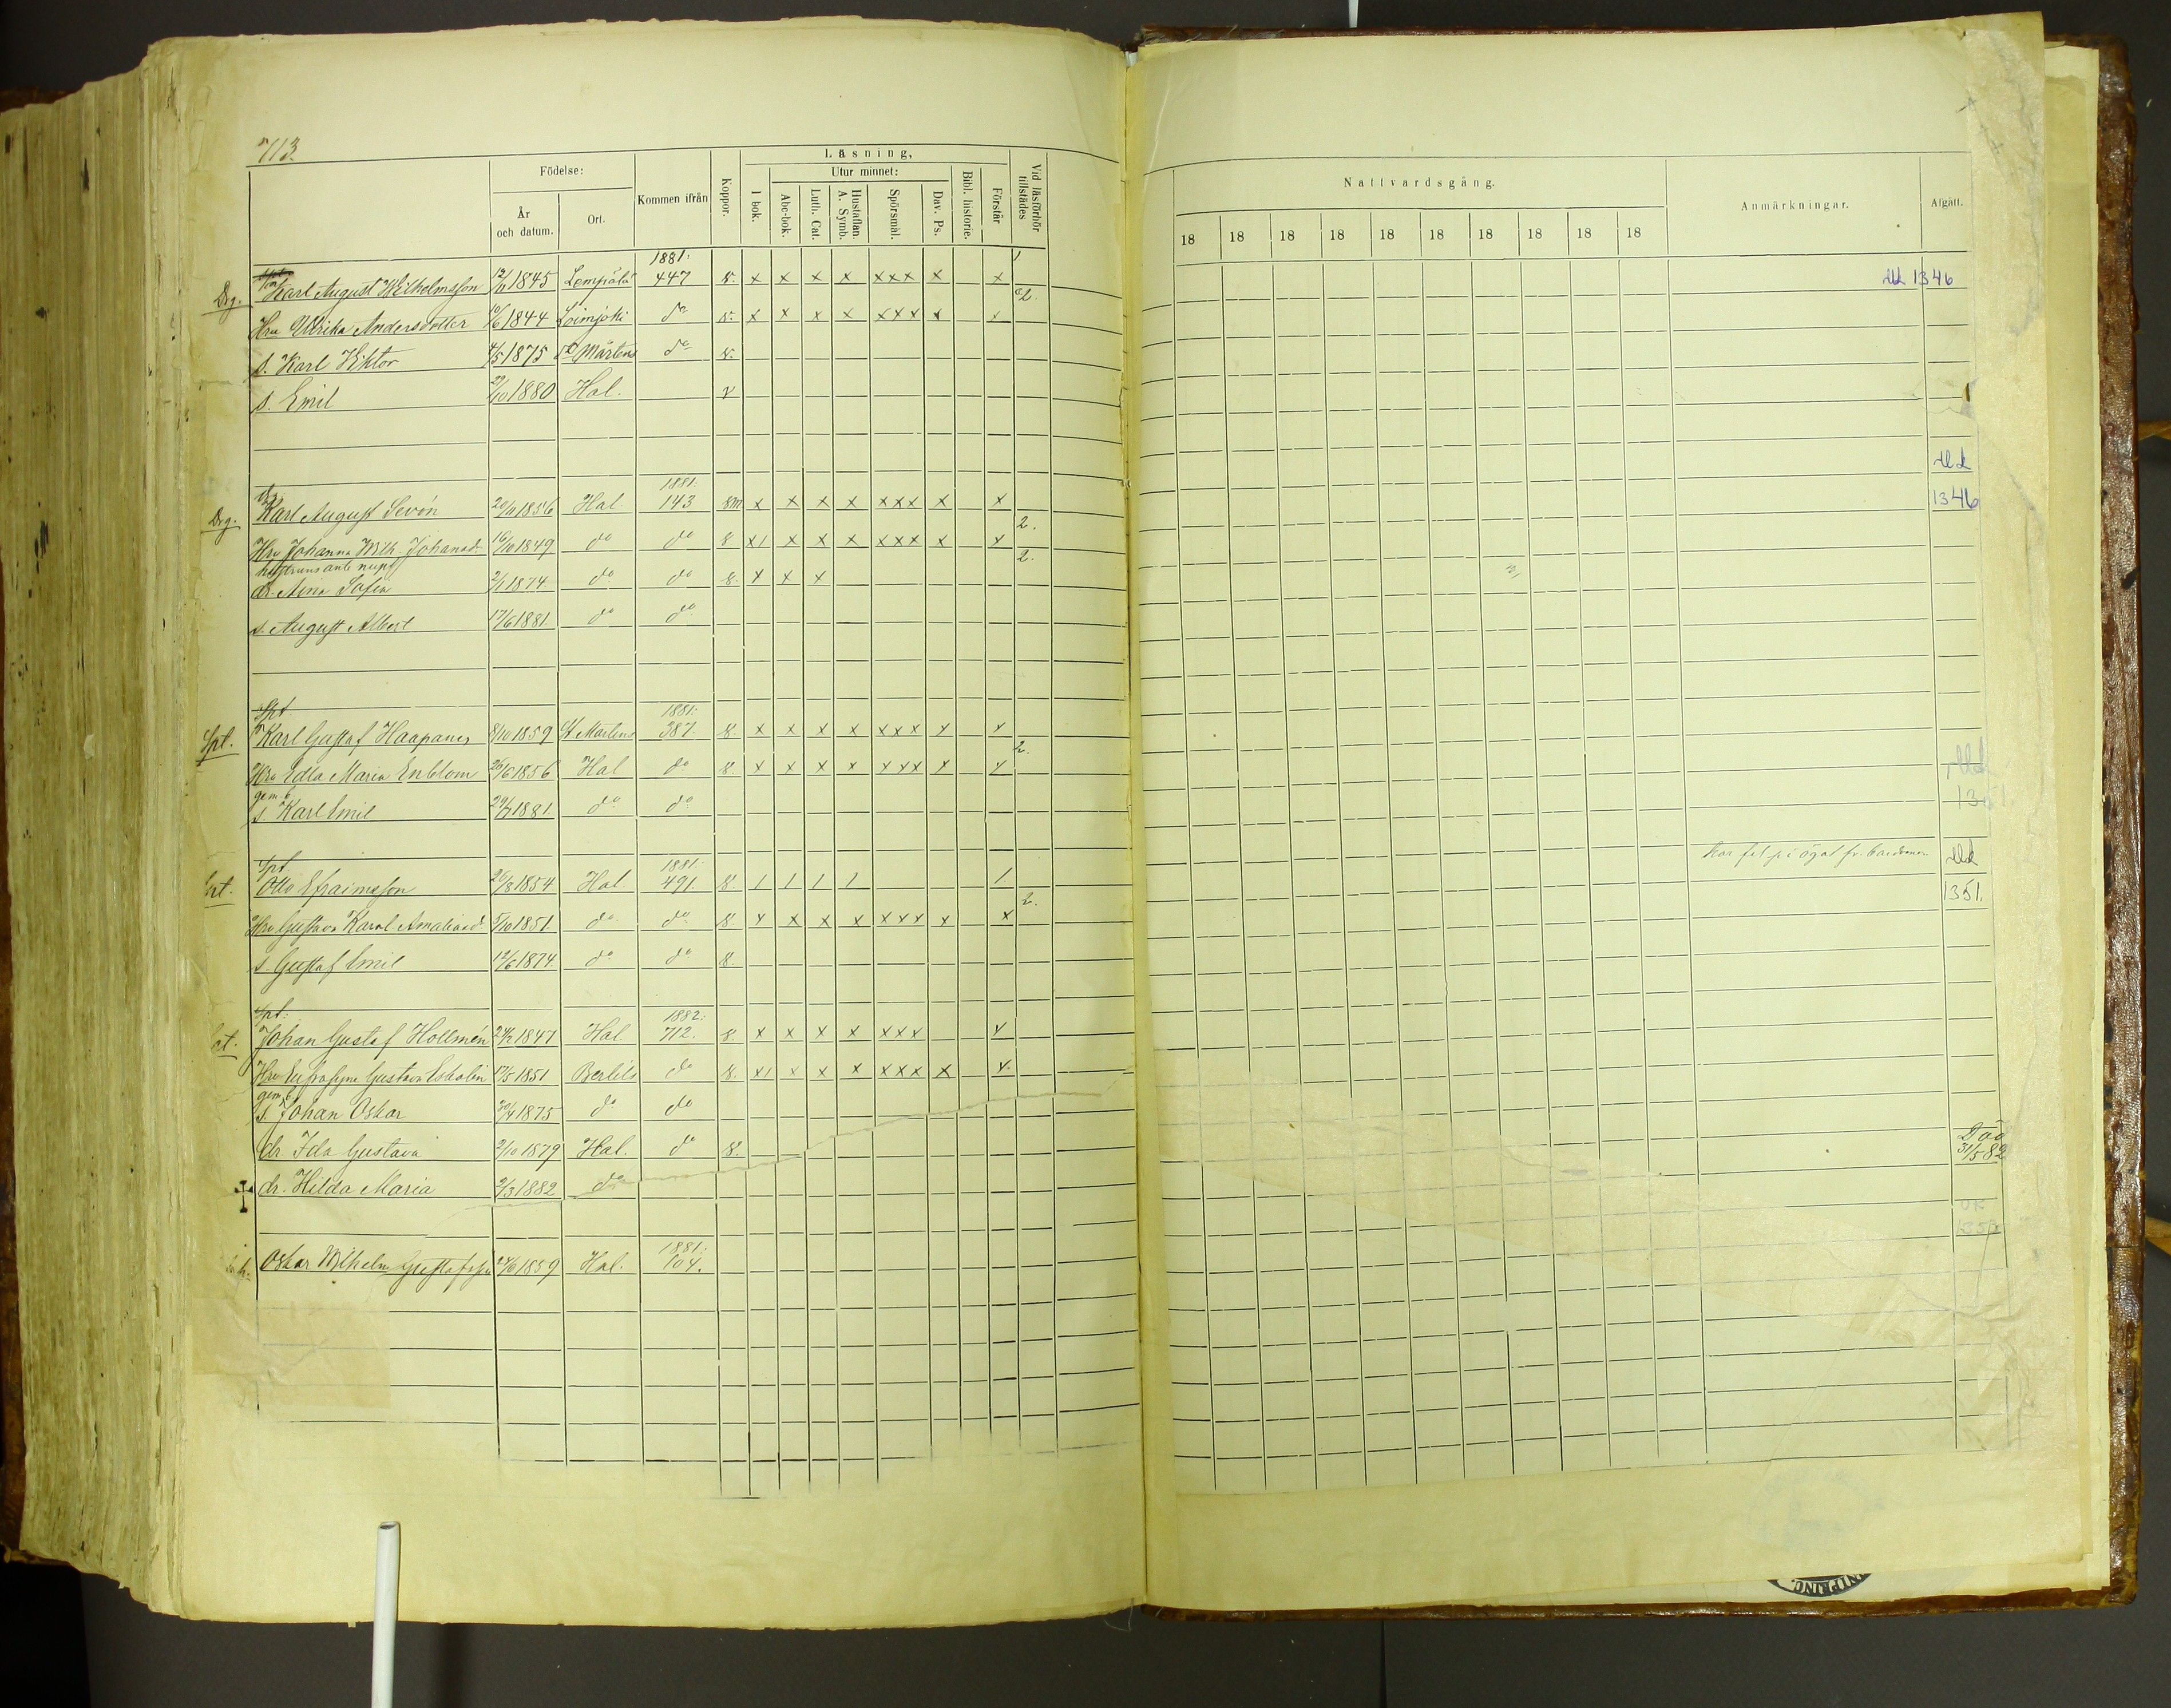 713.
Födelse: Kommen ifrån Koppor. Läsning, Vid läsförhör tillstädes
År och datum. Ort. I bok. Utur minnet: Abc-bok. Luth. Cat. Hustaflan. A. Symb. Spörsmål. Dav. Ps. Bibl. historie. Förstår
Nattvardsgång. Anmärkningar. Afgått.
18 18 18 18 18 18 18 18 18 18
1881.
Drg. Karl August Wilhelmsson 1845 Lempälä 447 v. x x x x xxx x x 1346
2.
Hru Ulrika Andersdotter 10/6 1844 Loimjoki do v. x x x x xxx x x
s. Karl Viktor 4/5 1875 St Mårtens do v.
s. Emil 29/10 1880 Hal. v
1881.
Drg. Karl August Sevón 1856 Hal. 143 x x x x xxx x x 1346
2.
Hru Johanna Wilh. Johansd. 16/10 1849 do do x1 x x x xxx x x
2.
hustruns ante nupt
dr. Aina Sofia 2/1 1874 do do x x x
s. August Albert 17/6 1881 do do
Spt. 1881.
Spt. Karl Gustaf Haapanen 8/10 1859 St Mårtens 387. 8. x x x x xxx x x
2.
Hru Edla Maria Enblom 26/6 1856 Hal do 8. x x x x xxx x x
gem b
s. Karl Emil 29/7 1881. do do
Spt. 1881.
Otto Efraimsson 26/8 1854 Hal. 491. 8. 1 1 1 1 1 har fel på ögat fr. barndomen
1351.
2.
Hru Gustava Karol. Amaliasd. 5/10 1851 do do 8. x x x x xxx x x
s. Gustaf Emil 12/6 1874. do do 8.
Spt. 1882.
Johan Gustaf Hollmén 24/2 1847 Hal. 712. 8. x x x x xxx x
Hru Eufrosyne Gustava Eskolin 17/5 1851 Bertils do 8. x1 x x x xxx x x
gem b
s. Johan Oskar 30/4 1875 do do
dr Ida Gustava 2/10 1879 Hal. do 8.
Död 31/5 82
dr. Hilda Maria 2/3 1882 do
1881.
Oskar Wilhelm Gustafsson 24/6 1859 Hal. 104.